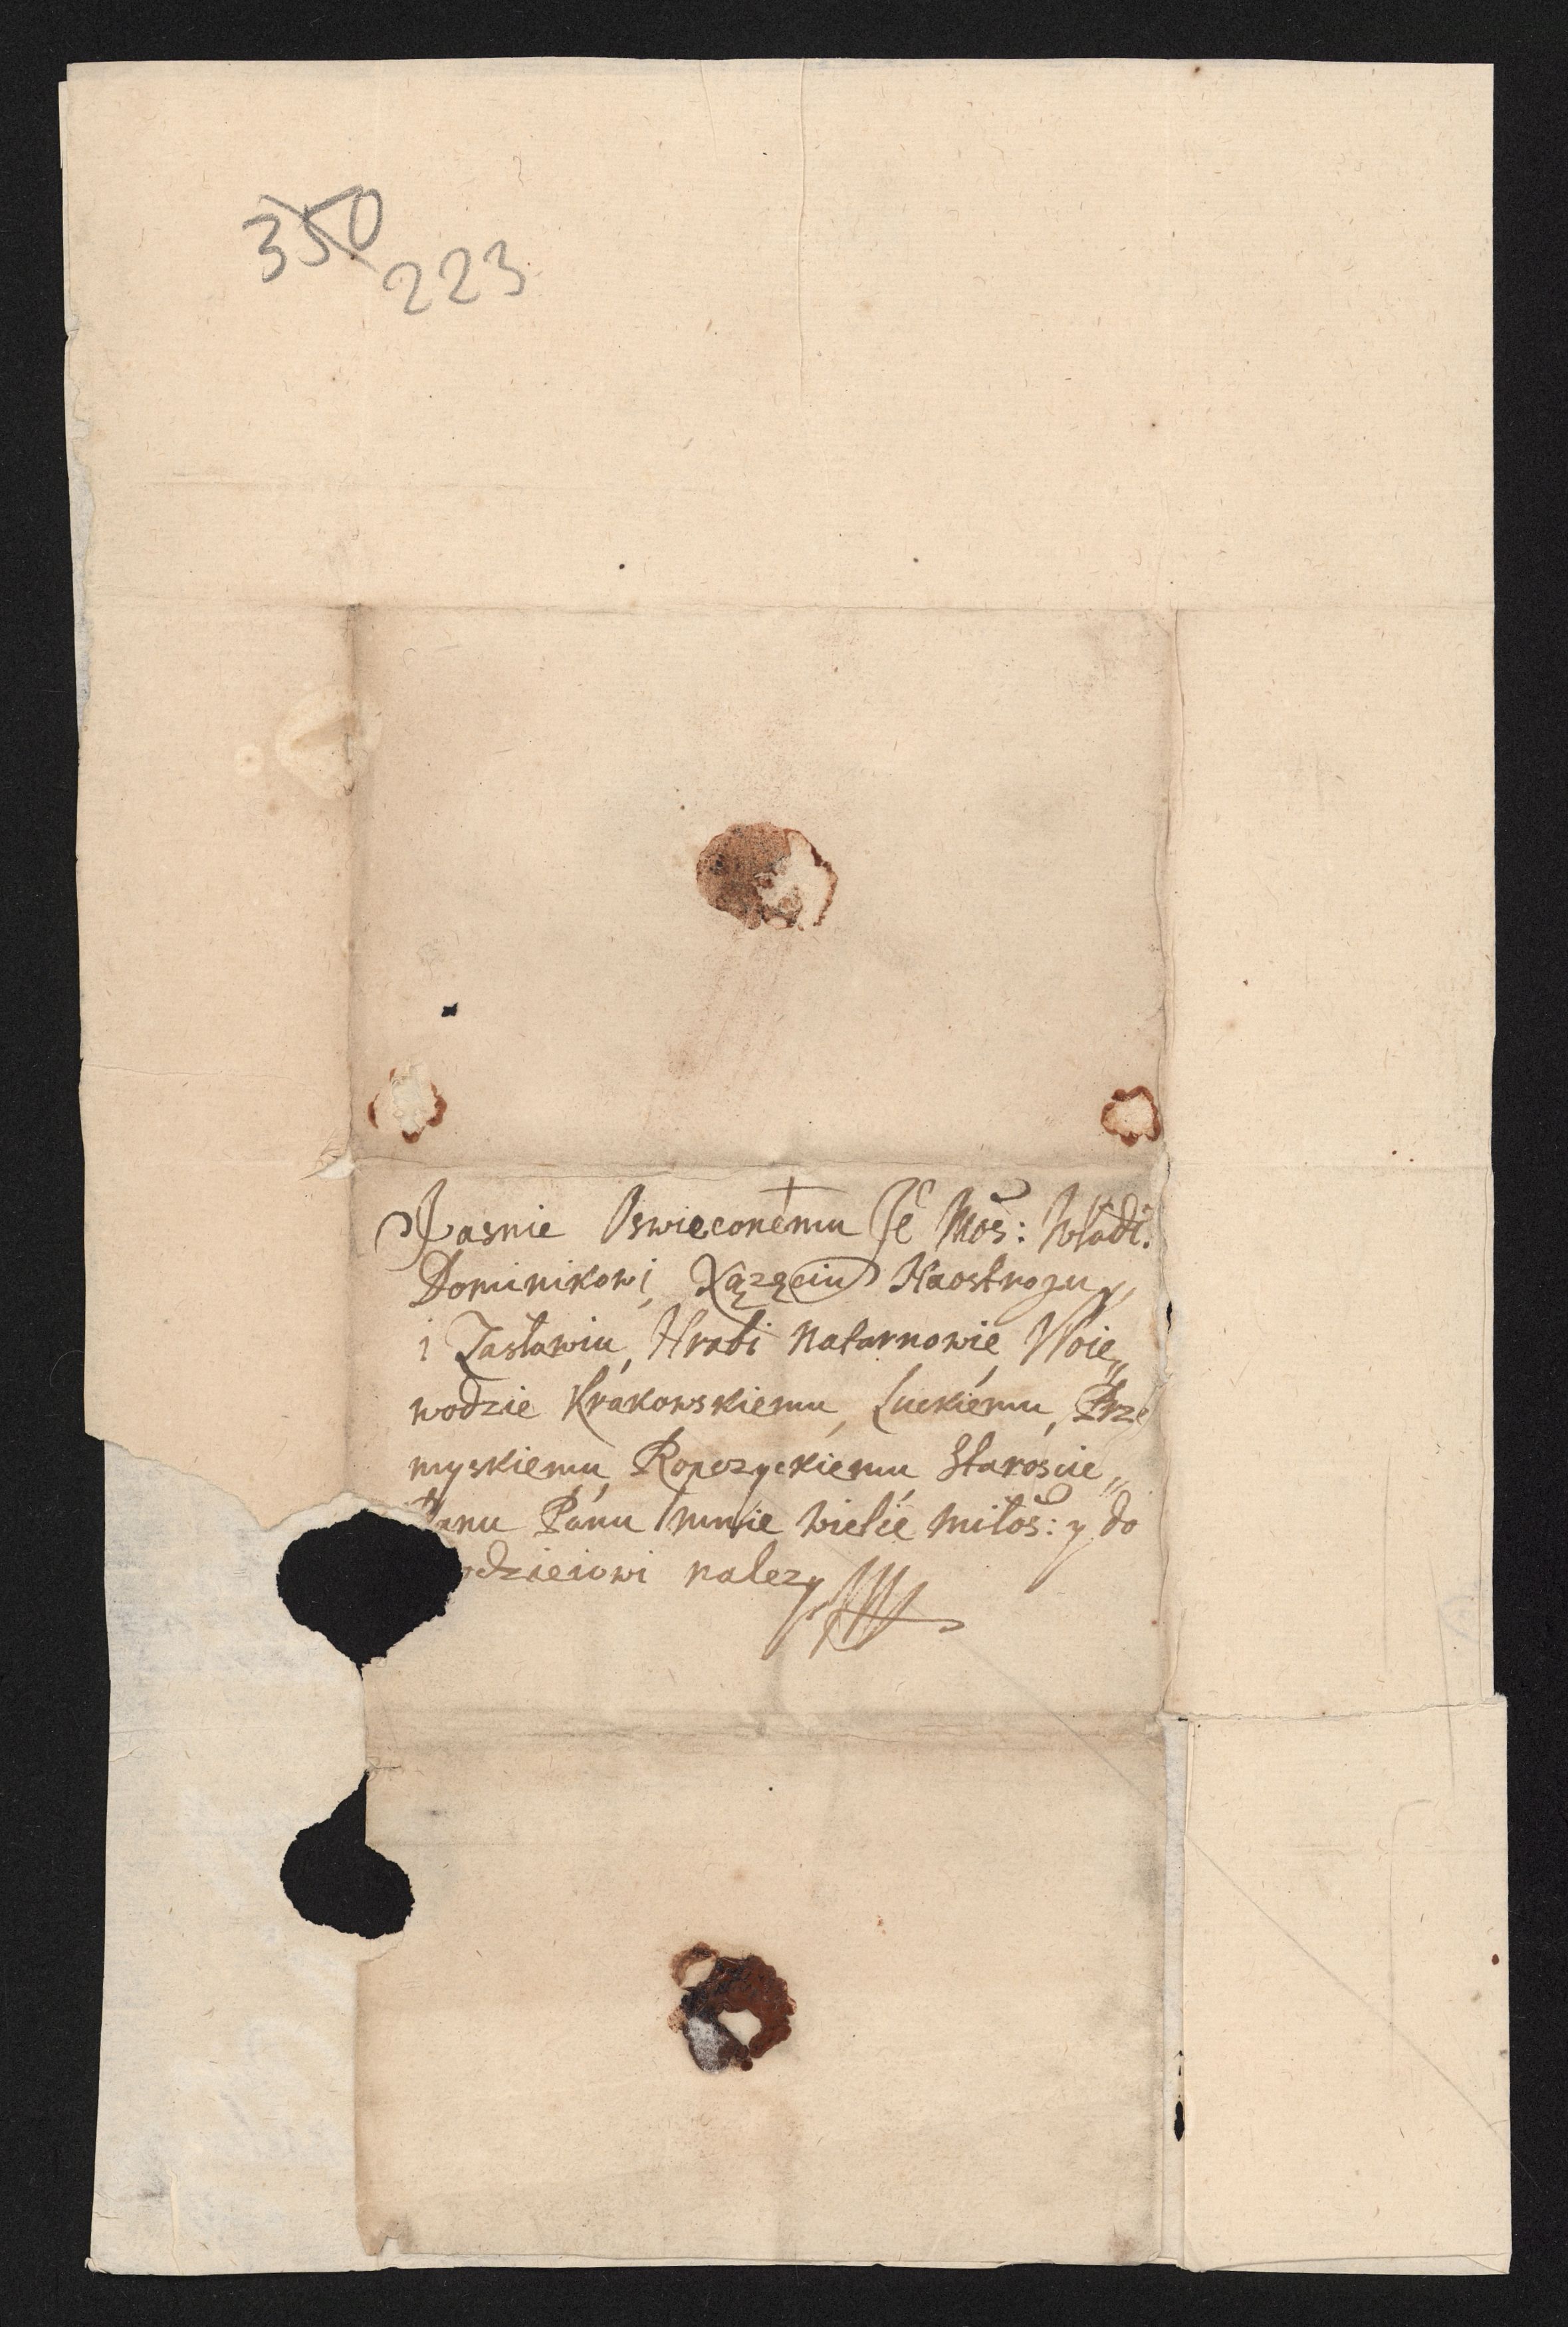 350
223
Jasnie Oswieconemu Je Mos: Władi:
Dominikowi Xązęciu Naostrogu,
i Zasławiu, Hrabi Natarnowie, Woie„
wodzie Krakowskiemu, Łuckiému, Prze
myskiemu, Ropczyckiemu Staroscie„
Panu Pánu mnie wielié miłos: y do
odzieiowi nalezy